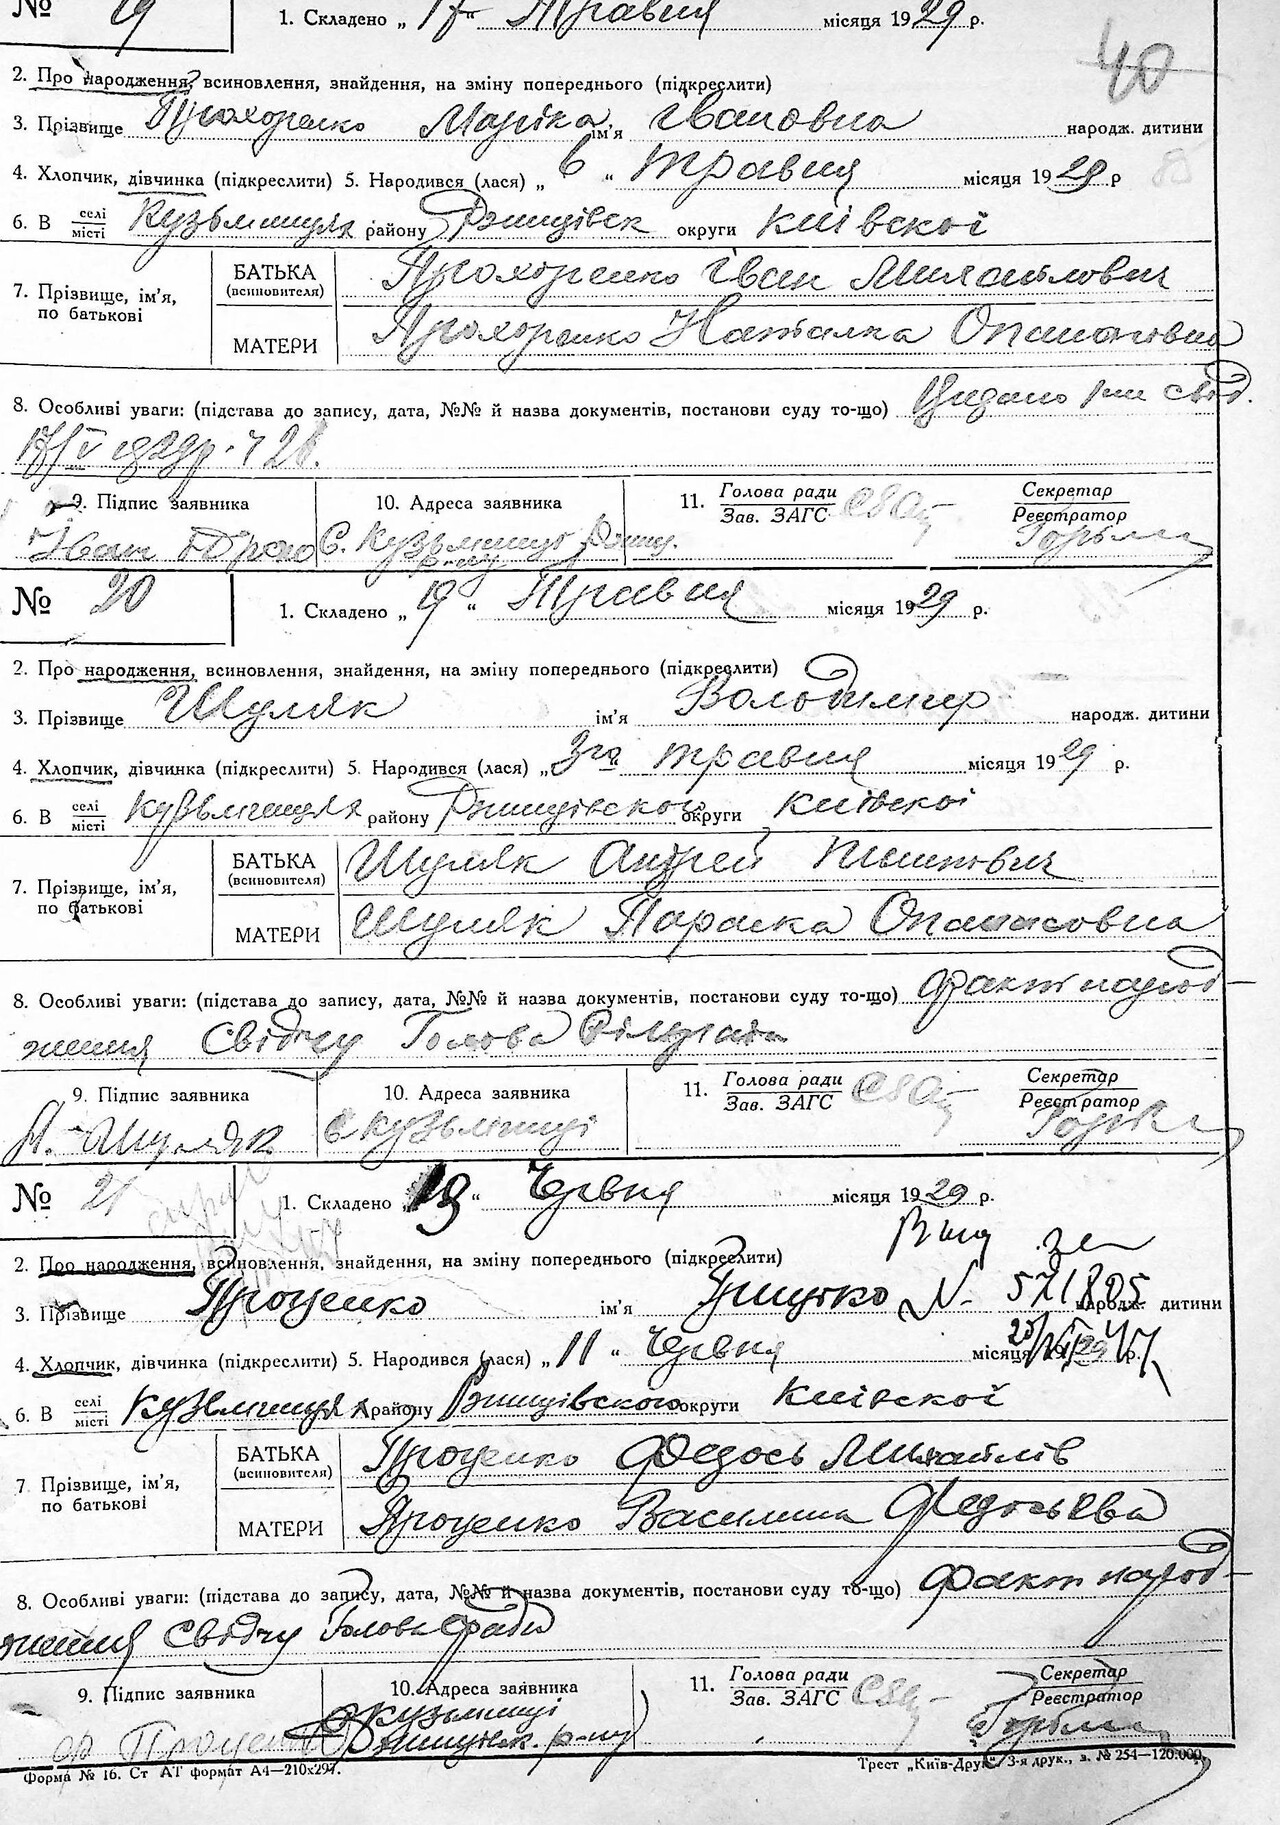 № 19 1. Складено „ 17 “ Травня місяця 1929 р.
40
2. Про народження, всиновлення, знайдення, на зміну попереднього (підкреслити)
3. Прізвище Прохоренко Марійка ім'я Івановна народж. дитини
4. Хлопчик, дівчинка (підкреслити) 5. Народився (лася) „ 6 “ травня місяця 1929 р
6. В селі/місті Кузьминцях району Ржищівск округи Київскої
7. Прізвище, ім'я, по батькові
БАТЬКА (всиновителя) Прохоренко Іван Михайлович
МАТЕРИ Прохоренко Наталка Опанасовна
8. Особливі уваги: (підстава до запису, дата, №№ й назва документів, постанови суду то-що) Видано
9. Підпис заявника 10. Адреса заявника 11. Голова ради / Зав. ЗАГС Секретар / Реєстратор
Иван С. Кузьминці
№ 20 1. Складено „ 19 “ Травня місяця 1929 р.
2. Про народження, всиновлення, знайдення, на зміну попереднього (підкреслити)
3. Прізвище Шуляк ім'я Володимир народж. дитини
4. Хлопчик, дівчинка (підкреслити) 5. Народився (лася) „ 3го “ травня місяця 1929 р.
6. В селі/місті Кузьминцях району Ржищівского округи Київскої
7. Прізвище, ім'я, по батькові
БАТЬКА (всиновителя) Шуляк Андрей
МАТЕРИ Шуляк Параска Опанасовна
8. Особливі уваги: (підстава до запису, дата, №№ й назва документів, постанови суду то-що) Факт народ-
ження Свідчу Голова
9. Підпис заявника 10. Адреса заявника 11. Голова ради / Зав. ЗАГС Секретар / Реєстратор
А. Шуляк С Кузьминці
№ 21 1. Складено „ 13 “ Червня місяця 1929 р.
2. Про народження, всиновлення, знайдення, на зміну попереднього (підкреслити)
3. Прізвище Проценко ім'я Грицько N. 571805 народж. дитини
4. Хлопчик, дівчинка (підкреслити) 5. Народився (лася) „ 11 “ Червня місяця 1929 р.
6. В селі/місті Кузьминцях району Ржищівского округи Київскої
7 Прізвище, ім'я, по батькові
БАТЬКА (всиновителя) Проценко Федось Михайлів
МАТЕРИ Проценко Василина Федосьева
8. Особливі уваги: (підстава до запису, дата, №№ й назва документів, постанови суду то-що) Факт народ-
ження Свідчу Голова Сради
9. Підпис заявника 10. Адреса заявника 11. Голова ради / Зав. ЗАГС Секретар / Реєстратор
Ф Проценко С Кузьминці
Ржищівск. р-ну
Форма № 16. Ст АГ формат А4—210х297. Трест „Київ-Друк“ 3-я друк., з. № 254—120.000.